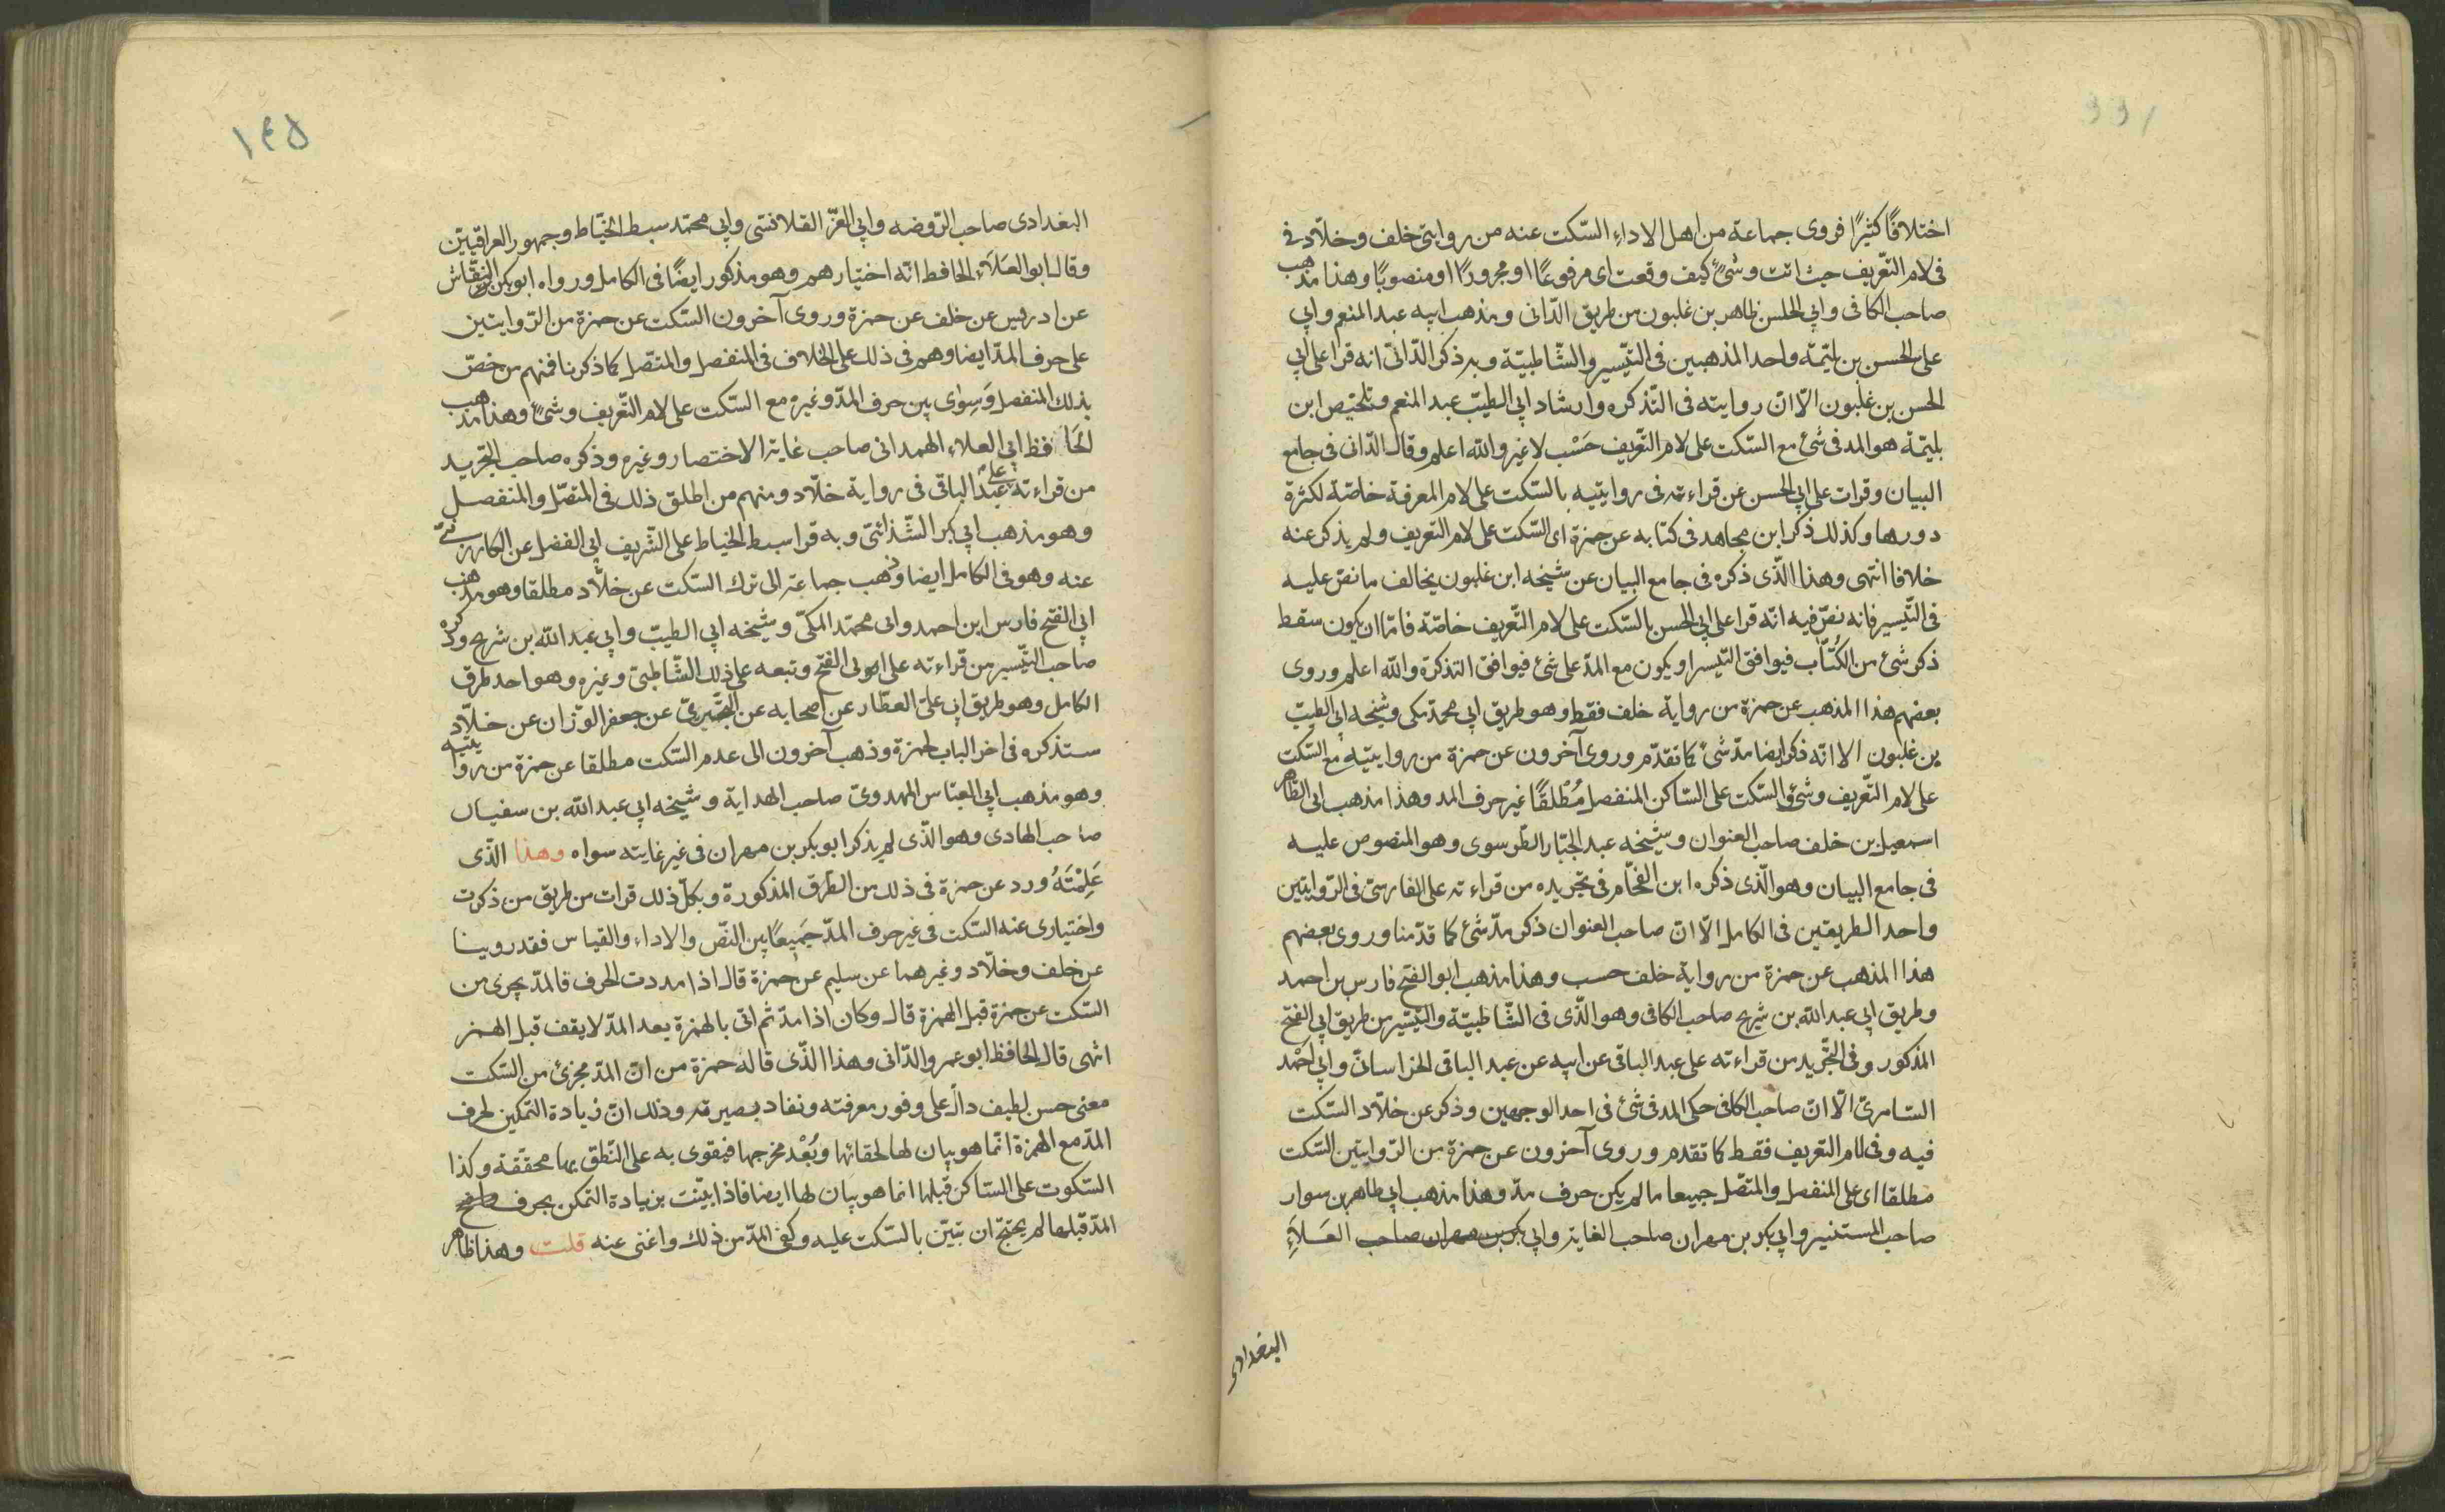 اختلافًا كثيرًا فروى جماعة من اهل الاداء السّكت عنه من روايتى خلف وخلّاد فى
فى لام التّعريف حيث اتت وشئٍ كيف وقعت اى مرفوعًا او مجرورًا او منصوبًا وهذا مذهب
صاحب الكافى وابى الحلسن طاهر بن غلبون من طريق الدّانى ومذهب ابيه عبد المنعم وابى
على الحسن بن بلتيمّة واحد المذهبين فى التّيسير والشّاطبيّة وبه ذكر الدّانىّ انه قرا على ابى
الحسن بن غلبون الّا انّ روايته فى التّذكره وارشاد ابى الطيبّ عبد المنعم وتلخيص ابن
بليمّة هو المد فى شئ مع السّكت على لام التّعريف حَسْب لا غير والله اعلم وقال الدّانى فى جامع
البيان وقرات على ابى الحسن عن قراءته فى روايتيه بالسّكت على لام المعرفة خاصّة لكثرة
دورها وكذلك ذكر ابن مجاهد فى كتابه عن حمزة اى السّكت على لام التعريف ولم يذكر عنه
خلافا انتهى وهذا الّذى ذكره فى جامع البيان عن شيخه ابن غلبون يخالف ما نصّ عليه
فى التّيسير فانه نصّ فيه انّه قرا على ابى الحسن بالسّكت على لام التّعريف خاصّة فامّا ان يكون سقط
ذكر شئ من الكُتّاب فيوافق التّيسر او يكون مع المدّ على شئ فيوافق التذكرة والله اعلم وروى
بعضهم هذا المذهب عن حمزة من رواية خلف فقط وهو طريق ابى محمدّ مكى وشيخه ابى الطيبّ
بن غلبون الا انّه ذكر ايضا مدّ شئ كما تقدّم وروى آخرون عن حمزة من روايتيه مع السّكت
على لام التّعريف وشئ والسّكت على السّاكن المنفصل مُطْلقًا غير حرف المد وهذا مذهب ابى الطّاهر
اسمعيل بن خلف صاحب العنوان وشيخه عبد الجبّار الطّرسوى وهو المنصوص عليه
فى جامع البيان وهو الّذى ذكره ابن الفحّام فى تجريده من قراءته على الفارسىّ فى الرّوايتين
واحد الطريقين فى الكامل الّا انّ صاحب العنوان ذكر مدّ شئ كما قدّمنا وروى بعضهم
هذا المذهب عن حمزة من رواية خلف حسب وهذا مذهب ابو الفتح فارس بن احمد
وطريق ابى عبد الله بن شريح صاحب الكافى وهو الّذى فى الشّاطبيّة والتيّسير من طريق ابى الفتح
المذكور وفى التّجريد من قراءته على عبد الباقى عن ابيه عن عبد الباقى الخراسانىّ وابى احْمد
السّامرىّ الّا انّ صاحب الكافى حكى المد فى شئ فى احد الوجهين وذكر عن خلّاد السّكت
فيه وفى لام التعريف فقط كما تقدم وروى آخرون عن حمزة من الرّوايتين السّكت
مطلقا اى على المنفصل والمتصّل جميعا ما لم يكن حرف مدّ وهذا مذهب ابى طاهر بن سوار
صاحب المستنير وابى بكر بن مهران صاحب الغاية وابى بكر بن مهران صاحب العَلَاءِ
البغدادى
١٤٥
البغدادى صاحب الرّوضه وابى العزّ القلانسّى وابى محمّد سبط الخيّاط وجمهور العراقيّين
وقال ابو العَلَاَءِ الحافظ انّه اختيارهم وهو مذكور ايضًا فى الكامل ورواه ابو بكر النقّاش
عن ادريس عن خلف عن حمزة وروى آخرون السّكت عن حمزة من الرّوايتين
على حرف المدّ ايضا وهم فى ذلك على الخلاف فى المنفصل والمتّصل كما ذكرنا فمنهم من خصّ
بذلك المنفصل وَسِوى بين حرف المدّ وغيره مع السّكت على لام التّعريف وشئٍ وهذا مذهب
الحَافظ ابى العلاء الهمدانى صاحب غاية الاختصار وغيره وذكره صاحب التّجريد
من قراءته على عبد الباقى فى رواية خلّاد ومنهم من اطلق ذلك فى المتصّل والمنفصل
وهو مذهب ابى بكر الشّذائىّ وبه قرا سبط الخياط على الشّريف ابى الفضل عن الكارزينىّ
عنه وهو فى الكامل ايضا وذهب جماعة الى ترك السّكت عن خلّاد مطلقا وهو مذهب
ابى الفتح فارس ابن احمد وابى محمّد المكىّ وشيخه ابى الطيبّ وابى عبد اللّه بن شريح وذكره
صاحب التّيسير من قراءته على ابى الفتح وتبعه على ذلك الشّاطبىّ وغيره وهو احد طرق
الكامل وهو طريق ابى علىّ العطّار عن اصحابه عن البخّترىّ عن جعفر الوّزان عن خلّاد
ستذكره فى اخر الباب لحمزة وذهب آخرون الى عدم السّكت مطلقا عن حمزة من روايتيه
وهو مذهب ابى العبّاس المهدوىّ صاحب الهداية وشيخه ابى عبد اللّه بن سفيان
صاحب الهادى وهو الّذى لم يذكر ابو بكر بن مهران فى غير غايته سواه وهذا الّذى
عَلِمْتَهُ ورد عن حمزة فى ذلك من الطّرق المذكورة وبكلّ ذلك قرات من طريق من ذكرت
واختيارى عنه السّكت فى غير حرف المدّ جَمِيعًا بين النّصّ والاداء والقياس فقد روينا
عن خلف وخلّاد وغيرهما عن سليم عن حمزة قال اذا مددت الحرف فالمدّ يجزى من
السّكت عن حمزة قبل الهمزة قال وكان اذا مدّ ثم اتى بالهمزة بعد المدّ لا يقف قبل الهمز
انتهى قال الحافظ ابو عمرو الدّانى وهذا الّذى قاله حمزة من انّ المدّ مجزئ من السّكت
معنى حسن لطيف دالّ على وفور معرفته ونفاد بصيرته وذلك انّ زيادة التّمكين لحرف
المدّ مع الهمزة انّما هو بيان لها لخفائها وبُعْد مخرجها فيقوى به على النّطق بها محقّقة وكذا
السّكوت على السّاكن قبلها انما هو بيان لها ايضا فاذا بيّنت بزيادة التمكن بحرف
المدّ قبلها لم يحتج ان تبيّن بالسّكت عليه وكفى المدّ من ذلك واغنى عنه قلت وهذا ظاهر